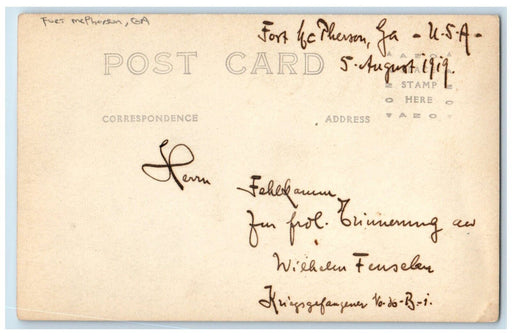 Fort McPherson, GA
Fort McPherson, Ga - U-S-A-
5. August 1919.
POST CARD
AZO
STAMP
HERE
AZO
CORRESPONDENCE
ADDRESS
Herrn
Fehlkamm
Zur frdl. Erinnerung an
Wilhelm
Kriegsgefangener